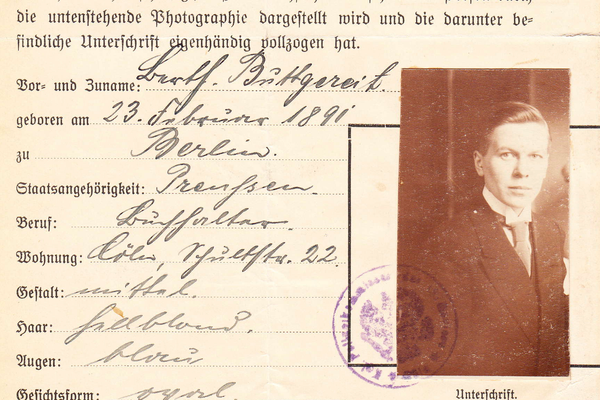 die untenstehende Photographie dargestellt wird und die darunter be=
findliche Unterschrift eigenhändig vollzogen hat.
Vor- und Zuname: Berth. Buttgereit.
geboren am 23. Februar 1891
zu Berlin.
Staatsangehörigkeit: Preussen.
Beruf: Buchhalter.
Wohnung: Cöln, 22.
Gestalt: mittel.
Haar: hellblond.
Augen: blau
Gesichtsform: oval.
Unterschrift.